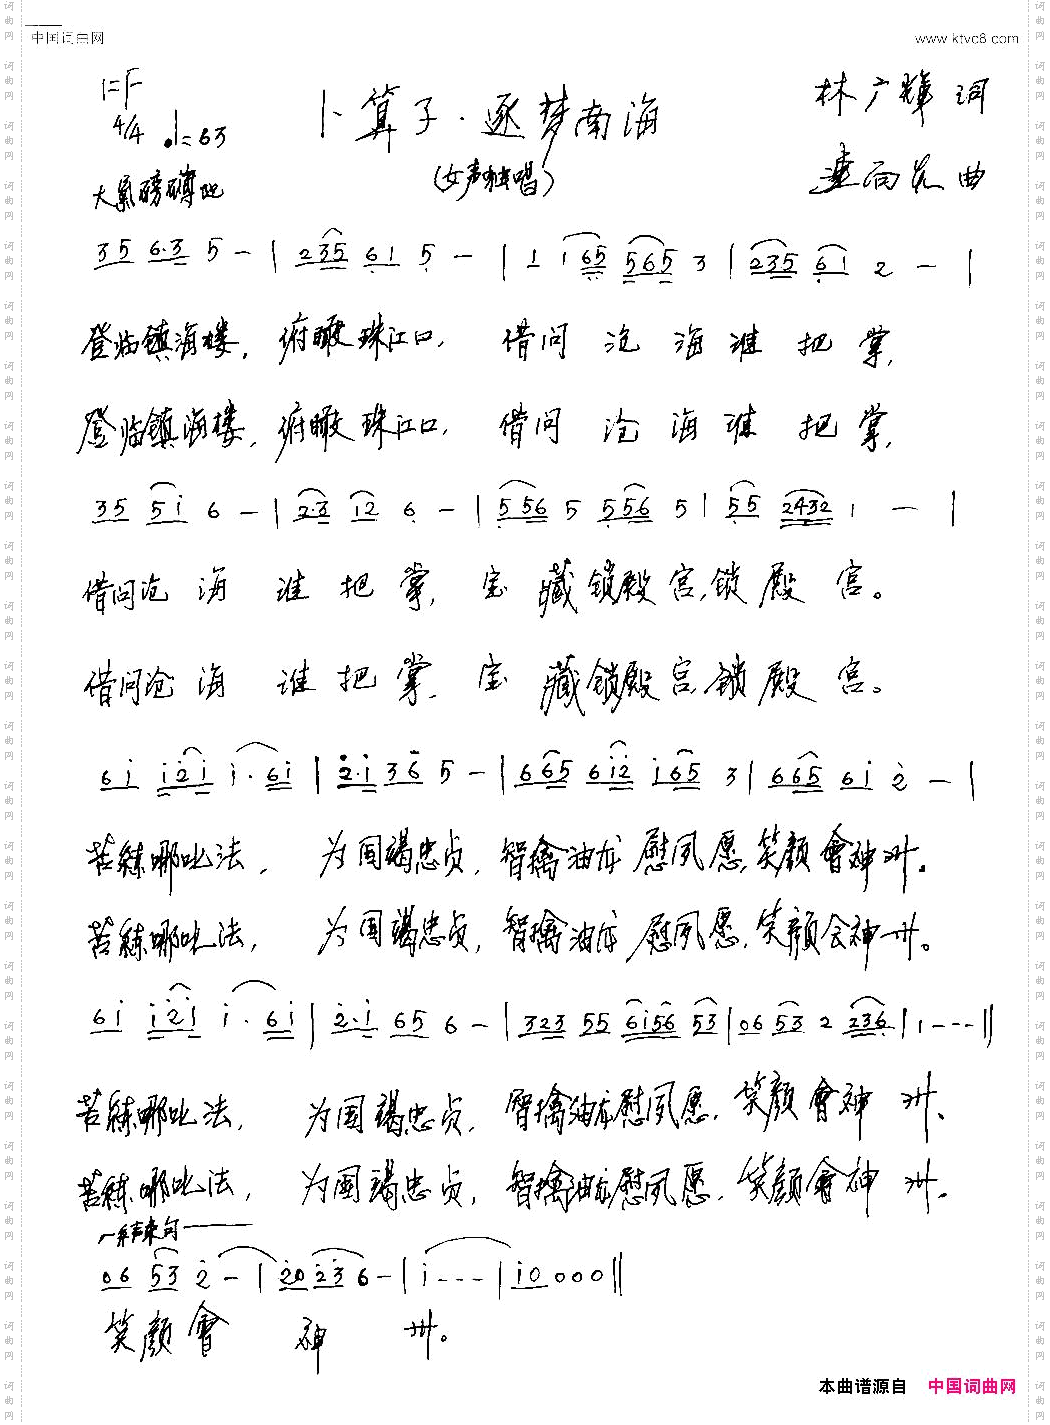 中国词曲网 www.ktvc8.com
1=F
4/4 ♩=63
卜算子·逐梦南海
(女声独唱)
林广辉 词
曲
大气磅礴地
35 6·3 5 - | 235 61 5 - | 1 i65 565 3 | 235 61 2 - |
登临镇海楼，俯瞰珠江口，借问沧海谁把掌，
登临镇海楼，俯瞰珠江口，借问沧海谁把掌，
35 5i 6 - | 2·3 12 6 - | 556 5 556 5 | 55 2432 1 - |
借问沧海谁把掌，宝藏锁殿宫，锁殿宫。
借问沧海谁把掌，宝藏锁殿宫，锁殿宫。
6i i2i i·6i | 2·i 36 5 - | 665 6i2 i65 3 | 665 6i 2 - |
苦练哪吒法，为国竭忠贞，智擒油龙慰夙愿，笑颜會神州。
苦练哪吒法，为国竭忠贞，智擒油龙慰夙愿，笑颜会神州。
6i i2i i·6i | 2·i 65 6 - | 323 55 6i56 53 | 06 53 2 236 | 1 - - - ||
苦练哪吒法，为国竭忠贞，智擒油龙慰夙愿，笑颜會神州、
苦练哪吒法，为国竭忠贞，智擒油龙慰夙愿，笑颜會神州。
结束句
06 53 2 - | 20 23 6 - | i - - - | i0 0 0 0 ||
笑颜會神州。
本曲谱源自 中国词曲网